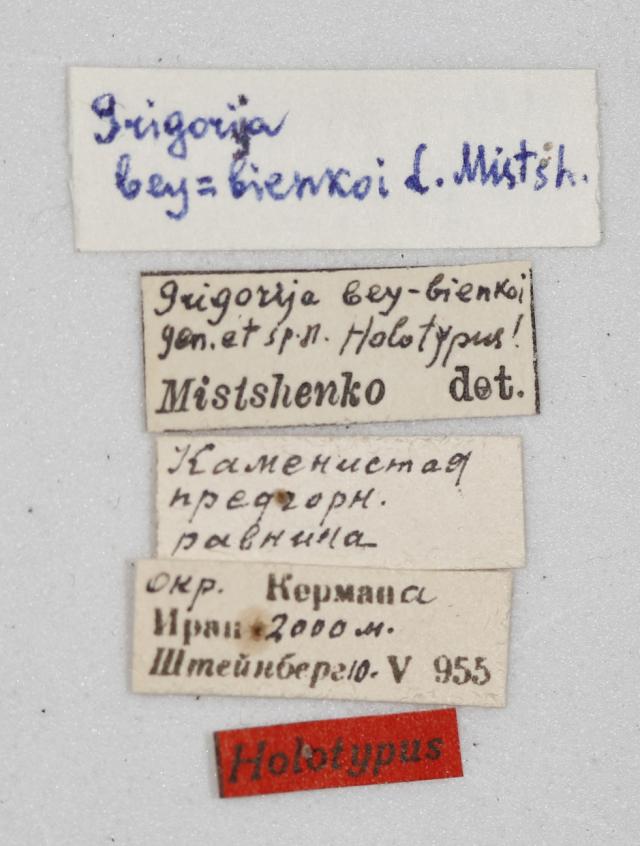 Grigorija
bey=bienkoi L. Mistsh.
Grigorija bey-bienkoi
gen. et sp. n. Holotypus!
Mistshenko det.
Каменистая
предгорн.
равнина
окр. Кермана
Иран 2000 м.
Штейнберг 10. V 955
Holotypus